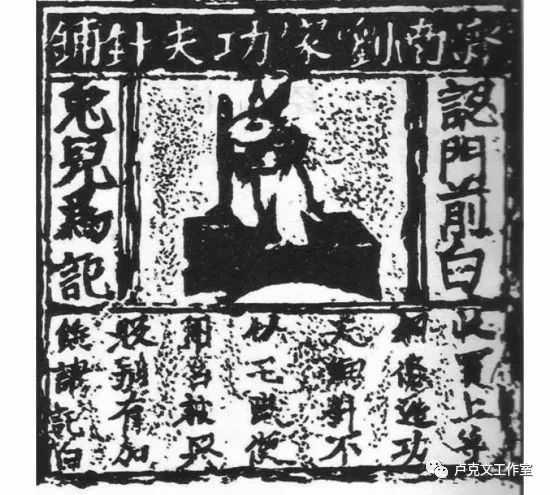 濟南劉家功夫針鋪
認門前白
兔兒為記
收買上等
鋼條造功
夫細針不
宅 使
用若被興
販別有加
饒請記白
卢克文工作室